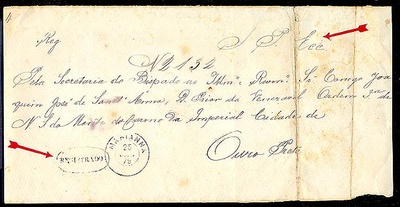 Reg
S. P. Ecc
N 2152
Pela Secretaria do Bispado ao Illmº Revmº Sr Conego Joa
quim José de Sant' Anna, D. Prior da Veneravel Ordem 3ª de
N S do Monte do Carmo da Imperial Cidade de
Ouro Preto
REGISTRADO
MARIANNA
25
78